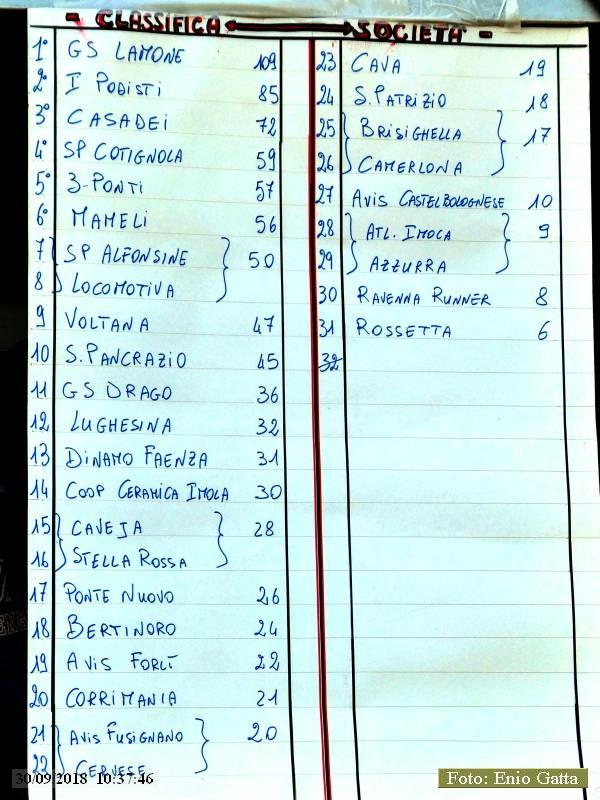 - CLASSIFICA SOCIETÀ -
1° GS LAMONE 109
2° I PODISTI 85
3° CASADEI 72
4° SP COTIGNOLA 59
5° 3-PONTI 57
6° MAMELI 56
7 SP ALFONSINE 50
8 LOCOMOTIVA
9 VOLTANA 47
10 S.PANCRAZIO 45
11 GS DRAGO 36
12 LUGHESINA 32
13 DINAMO FAENZA 31
14 COOP CERAMICA IMOLA 30
15 CAVEJA 28
16 STELLA ROSSA
17 PONTE NUOVO 26
18 BERTINORO 24
19 AVIS FORLÌ 22
20 CORRIMANIA 21
21 AVIS FUSIGNANO 20
22 CERVESE
23 CAVA 19
24 S.PATRIZIO 18
25 BRISIGHELLA 17
26 CAMERLONA
27 AVIS CASTELBOLOGNESE 10
28 ATL. IMOCA 9
29 AZZURRA
30 RAVENNA RUNNER 8
31 ROSSETTA 6
32
30/09/2018 10:37:46
Foto: Enio Gatta